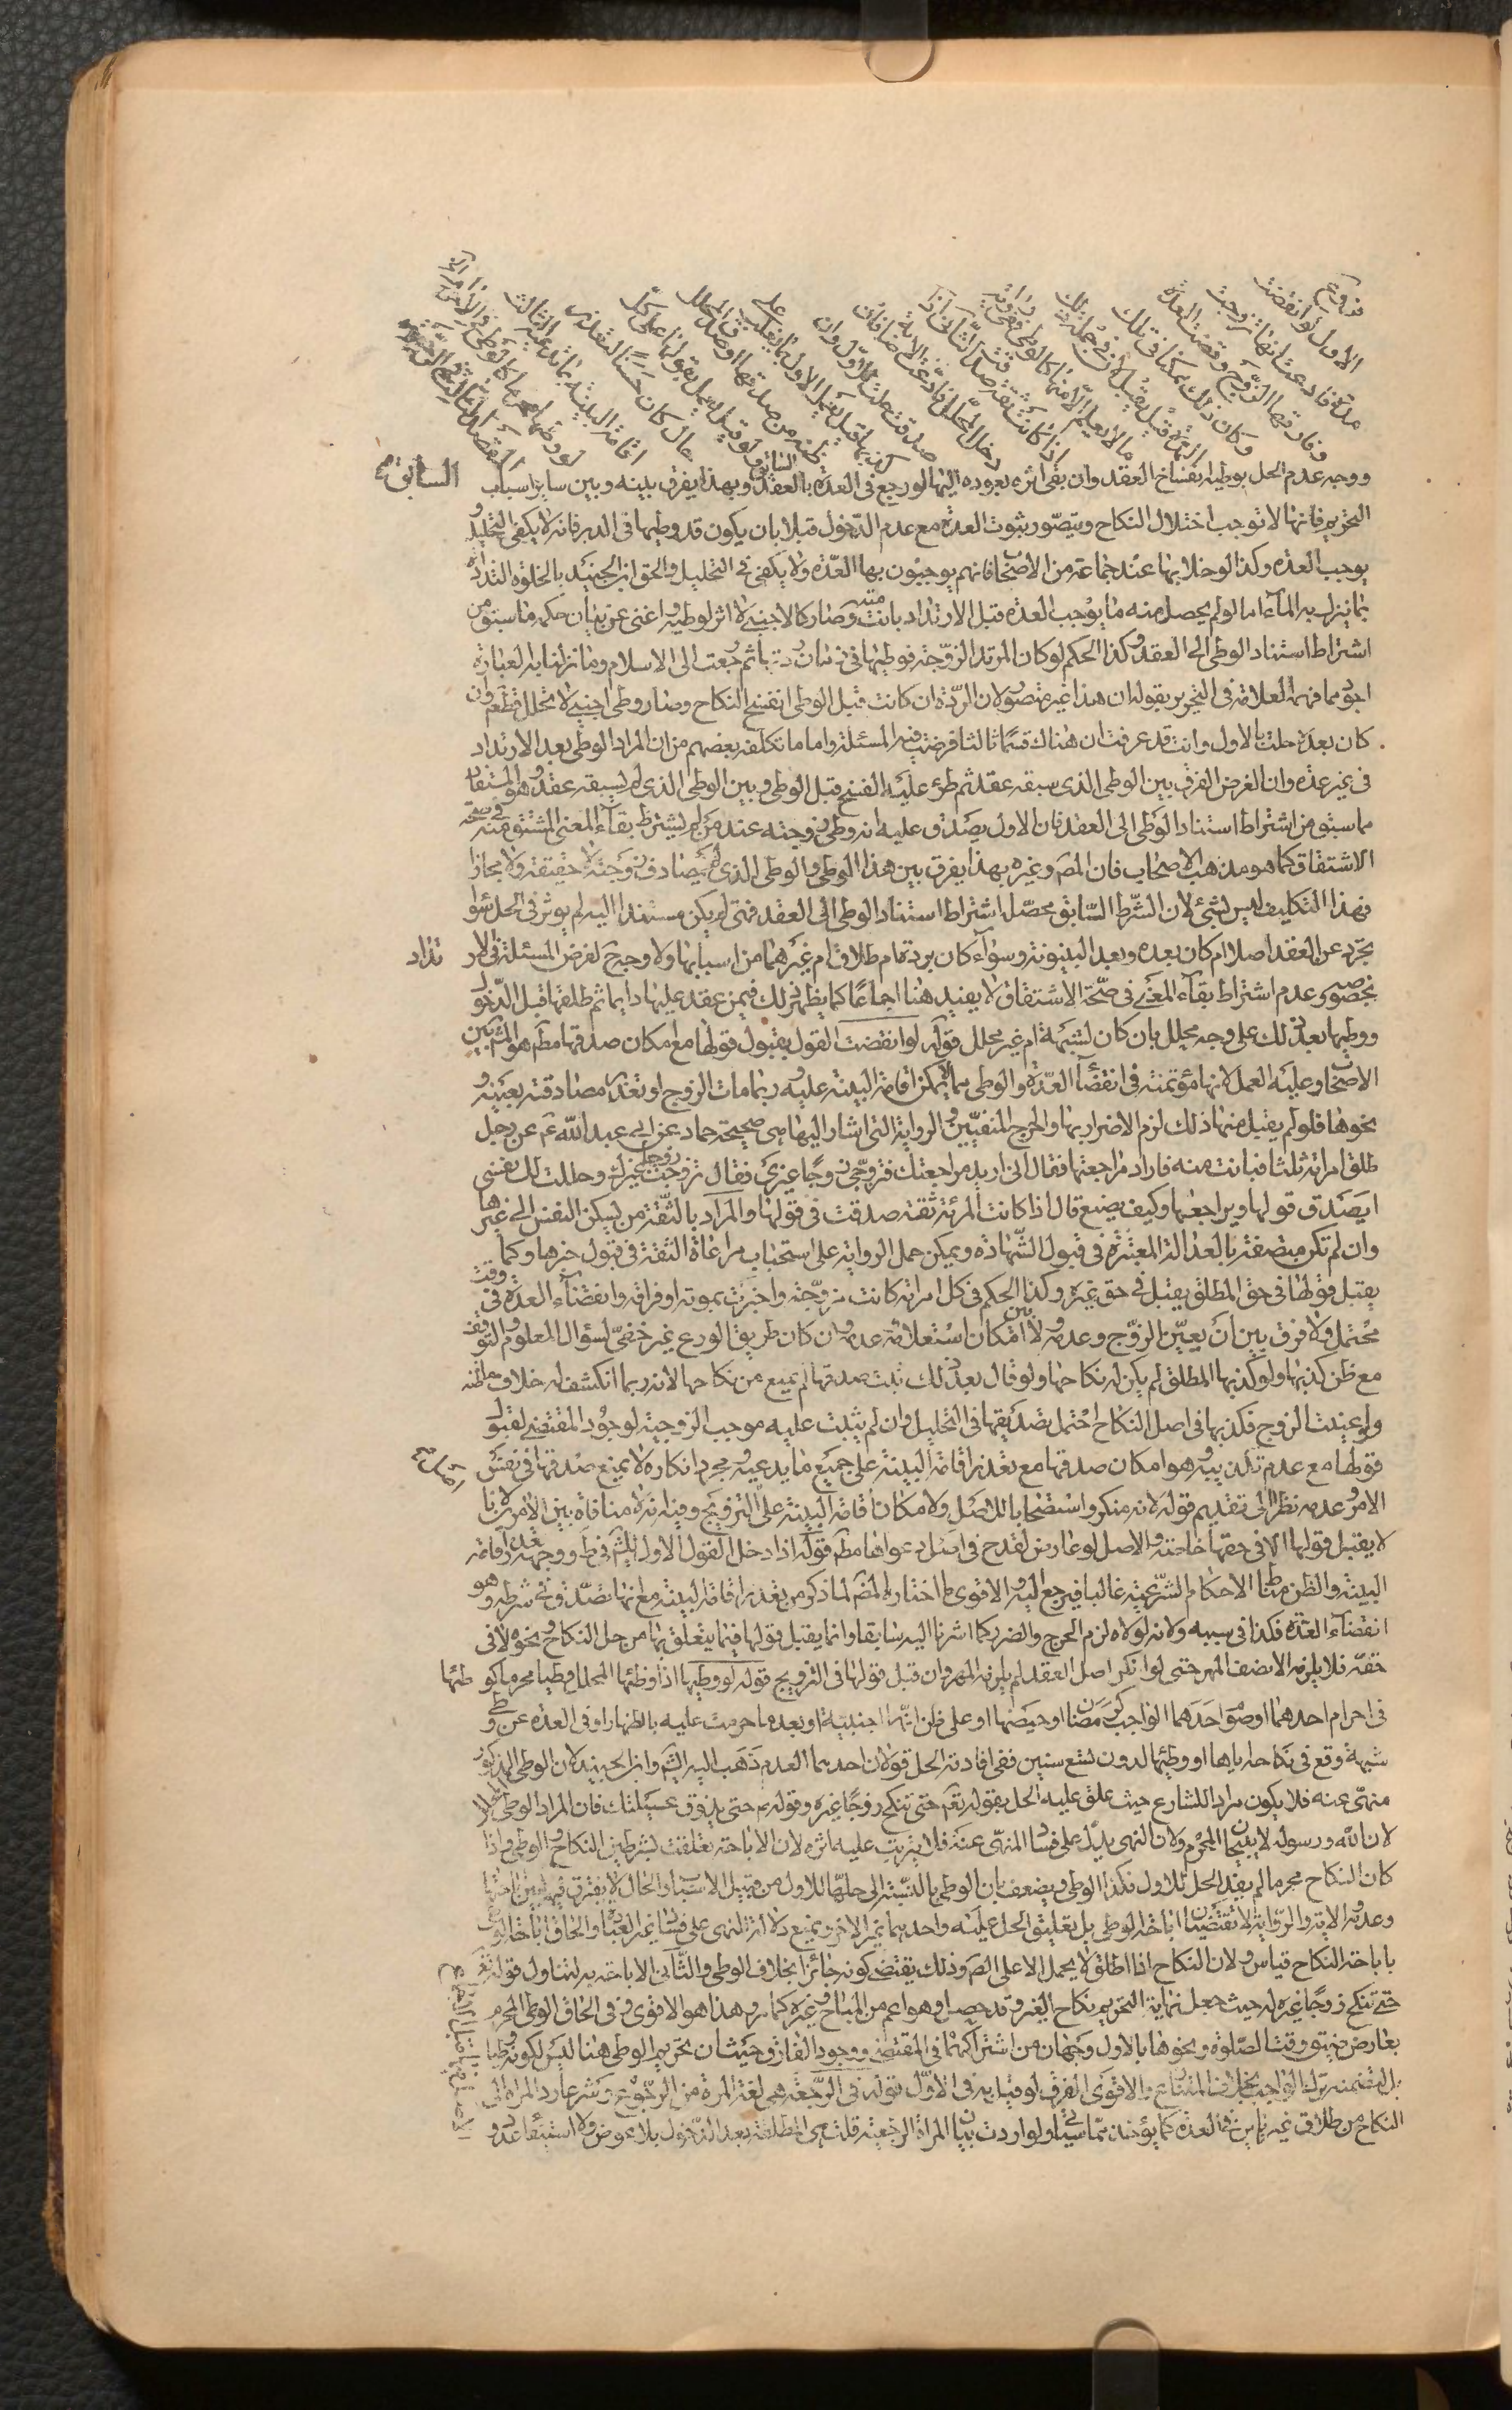 فروع
الاول لو انقضت
مدة فادعت انها تزوجت
وفارقها الزوج وقضت العدة
وكان ذلك ممكنا في تلك
المدة قيل يقبل لان في جملة ذلك
ما لا يعلم الا منها كالوطي وفي رواية
اذا كانت ثقة صدقت الثاني اذا
دخل المحلل فادعت الاصابة فان
صدقها حلت للاول وان
كذبها قيل يعمل الاول بما يغلب على
ظنه من صدقها او صدق المحلل
ولو قيل يعمل بقولها على كل
حال كان حسنا لتعذر
اقامة البينة بما تدعيه الثالث
لو وطئها محرما كالوطي في الاحرام
ووجه عدم الحل بوطيه انفساخ العقد وان بقى اثره بعوده اليها لو رجع في العدة بالعقد السابق وبهذا يفرق بينه وبين ساير اسباب
التحريم فانها لا توجب اختلال النكاح ويتصور ثبوت العدة مع عدم الدخول قبلا بان يكون قد وطيها في الدبر فانه لا يكفى التحليل و
يوجب العدة وكذا لو خلا بها عند جماعة من الاصحاب فانهم يوجبون بها العدة ولا يكفى في التحليل والحق ابن الجنيد بالخلوة التذاذه
بما ينزل به الماء اما لو لم يحصل منه ما يوجب العدة قبل الارتداد بانت منه وصار كالاجنبي لا اثر لوطيه واغنى عن بيان حكمه ما سبق من
اشتراط استناد الوطى الى العقد وكذا الحكم لو كان المرتد الزوجة فوطيها في زمان ردتها ثم رجعت الى الاسلام وما نزلنا به العبارة
اجود مما فهمه العلامة في التحرير بقوله ان هذا غير متصور لان الردة ان كانت قبل الوطى انفسخ النكاح وصار وطى اجنبي لا تحلل قطعا وان
كان بعده حلت بالاول وانت قد عرفت ان هناك قسما ثالثا فرضت فيه المسئلة واما ما تكلفه بعضهم من ان المراد الوطى بعد الارتداد
في غير عدة وان الغرض الفرق بين الوطى الذى سبقه عقد ثم طرء عليه الفسخ قبل الوطى وبين الوطى الذى لم يسبقه عقد وهو المستفاد
مما سبق من اشتراط استناد الوطى الى العقد فان الاول يصدق عليه انه وطى زوجته عند من لم يشترط بقاء المعنى المشتق منه في صحة
الاشتقاق كما هو مذهب الاصحاب فان المص وغيره بهذا يفرق بين هذا الوطى والوطى الذى لم يصادف زوجة لا حقيقة ولا مجازا
فهذا التكليف ليس بشئ لان الشرط السابق محصل اشتراط استناد الوطى الى العقد فمتى لم يكن مستندا اليه لم يؤثر في الحل سواء
تجرد عن العقد اصلا ام كان بعده وبعد البينونة وسواء كان بردة ام طلاق ام غيرهما من اسبابها ولا وجه ح لفرض المسئلة في الارتداد
بخصوصه وعدم اشتراط بقاء المعنى في صحة الاشتقاق لا يفيد هنا اجماعا كما يظهر ذلك فيمن عقد عليها دايما ثم طلقها قبل الدخول
ووطيها بعد ذلك على وجه محلل بان كان لشبهة ام غير محلل قوله لو انقضت القول بقبول قولها مع امكان صدقها مط هو المش بين
الاصحاب وعليه العمل لانها مؤتمنة في انقضاء العدة والوطى مما لا يمكن اقامة البينة عليه وربما مات الزوج او تعذر مصادقته بغيبته و
نحوها فلو لم يقبل منها ذلك لزم الاضرار بها والحرج المنفيين والرواية التى اشار اليها هى صحيحة حماد عن ابي عبد الله ع عن رجل
طلق امراته ثلثا فبانت منه فاراد مراجعتها فقال انى اريد مراجعتك فتزوجى زوجا غيرى فقالت تزوجت زوجا غيرك وحللت لك نفسى
ايصدق قولها ويراجعها وكيف يصنع قال اذا كانت المرئة ثقة صدقت في قولها والمراد بالثقة من يسكن النفس الى خبرها
وان لم تكن متصفة بالعدالة المعتبرة في قبول الشهادة ويمكن حمل الرواية على استحباب مراعاة الثقة في قبول خبرها وكما
يقبل قولها في حق المطلق يقبل في حق غيره وكذا الحكم في كل امراة كانت مزوجة واخبرت بموته او فراقه وانقضاء العدة في وقت
محتمل ولا فرق بين ان يعين الزوج وعدمه ولا بين امكان استعلامه وعدمه وان كان طريق الورع غير خفى لسؤال المعلوم والتوقف
مع ظن كذبها ولو كذبها المطلق لم يكن له نكاحها ولو قال بعد ذلك ثبت صدقها لم يمنع من نكاحها لانه ربما انكشف له خلاف ما ظنه
ولو عينت الزوج فكذبها في اصل النكاح احتمل تصديقها في التحليل وان لم يثبت عليه موجب الزوجية لوجود المقتضي لقبول
قولها مع عدم تكذيبه وهو امكان صدقها مع تعذر اقامة البينة على جميع ما يدعيه ومجرد انكاره لا يمنع صدقها في نفس
الامر وعدمه نظرا الى تقديم قوله لانه منكر واستصحابا للاصل ولامكان اقامة البينة على التزويج وفيه انه لا منافاة بين الامرين لانا
لا يقبل قولها الا في حقها خاصة والاصل لو عارض لقدح في اصل دعواها مط قوله اذا دخل القول الاول للشيخ في ط ووجهه تعذر اقامة
البينة والظن مناط الاحكام الشرعية غالبا فيرجع اليه والاقوى ما اختاره المص لما ذكر من تعذر اقامة البينة مع انها تصدق في شرطه وهو
انقضاء العدة فكذا في سببه ولانه لولاه لزم الحرج والضرر كما اشرنا اليه سابقا وانما يقبل قولها فيما يتعلق بها من حل النكاح ونحوه لا في
حقه فلا يلزمه الا نصف المهر حتى لو انكر اصل العقد لم يلزمه المهر وان قبل قولها في التزويج قوله لو وطيها اذا وطئها المحلل وطيا محرما كوطئها
في احرام احدهما او صوم احدهما الواجب كرمضان او حيضها او على ظن انها اجنبية او بعد ما حرمت عليه بالظهار او في العدة عن وطى
شبهة وقع في نكاحه اياها او وطئها لدون تسع سنين ففى افادته الحل قولان احدهما العدم ذهب اليه الشيخ وابن الجنيد لان الوطى المذكور
منهى عنه فلا يكون مراد للشارع حيث علق عليه الحل بقوله تع حتى تنكح زوجا غيره وقوله ص حتى يذوق عسيلتك فان المراد الوطى المباح
لان الله ورسوله لا يبيحان المحرم ولان النهى يدل على فساد المنهى عنه فلا يترتب عليه اثره لان الاباحة تعلقت بشرطين النكاح والوطى واذا
كان النكاح محرما لم يفد الحل للاول فكذا الوطى ويضعف بان الوطى بالنسبة الى حلها للاول من قبيل الاسباب والحال لا يفترق فيها بين اباحتها
وعدمه والاية والرواية لا تقتضيان اباحة الوطى بل تعليق الحل عليه واحدهما غير الاخر ويمنع دلالة النهى على فساد غير العبادة والحاق اباحة الوطى
باباحة النكاح قياس ولان النكاح اذا اطلق لا يحمل الا على الص وذلك يقتضي كونه جائزا بخلاف الوطى والثانى الاباحة به لتناول قوله تع
حتى تنكح زوجا غيره له حيث جعل نهاية التحريم نكاح الغير وقد حصل وهو اعم من المباح وغيره كما مر وهذا هو الاقوى وفي الحاق الوطى المحرم
بعارض ضيق وقت الصلوة ونحوها بالاول وجهان من اشتراكهما في المقتضي ووجود الفارق وحيث ان تحريم الوطى هنا ليس لكونه وطيا
بل لتضمنه ترك الواجب بخلاف المتنازع والاقوى الفرق لو قيل به في الاول قوله في الرجعة هى لغة المرة من الرجوع وشرعا رد المراة الى
النكاح من طلاق غير باين في العدة كما يؤخذ مما سياتى ولو اردت بيان المراة الرجعية قلت هى المطلقة بعد الدخول بلا عوض ولا استيفاء عدد